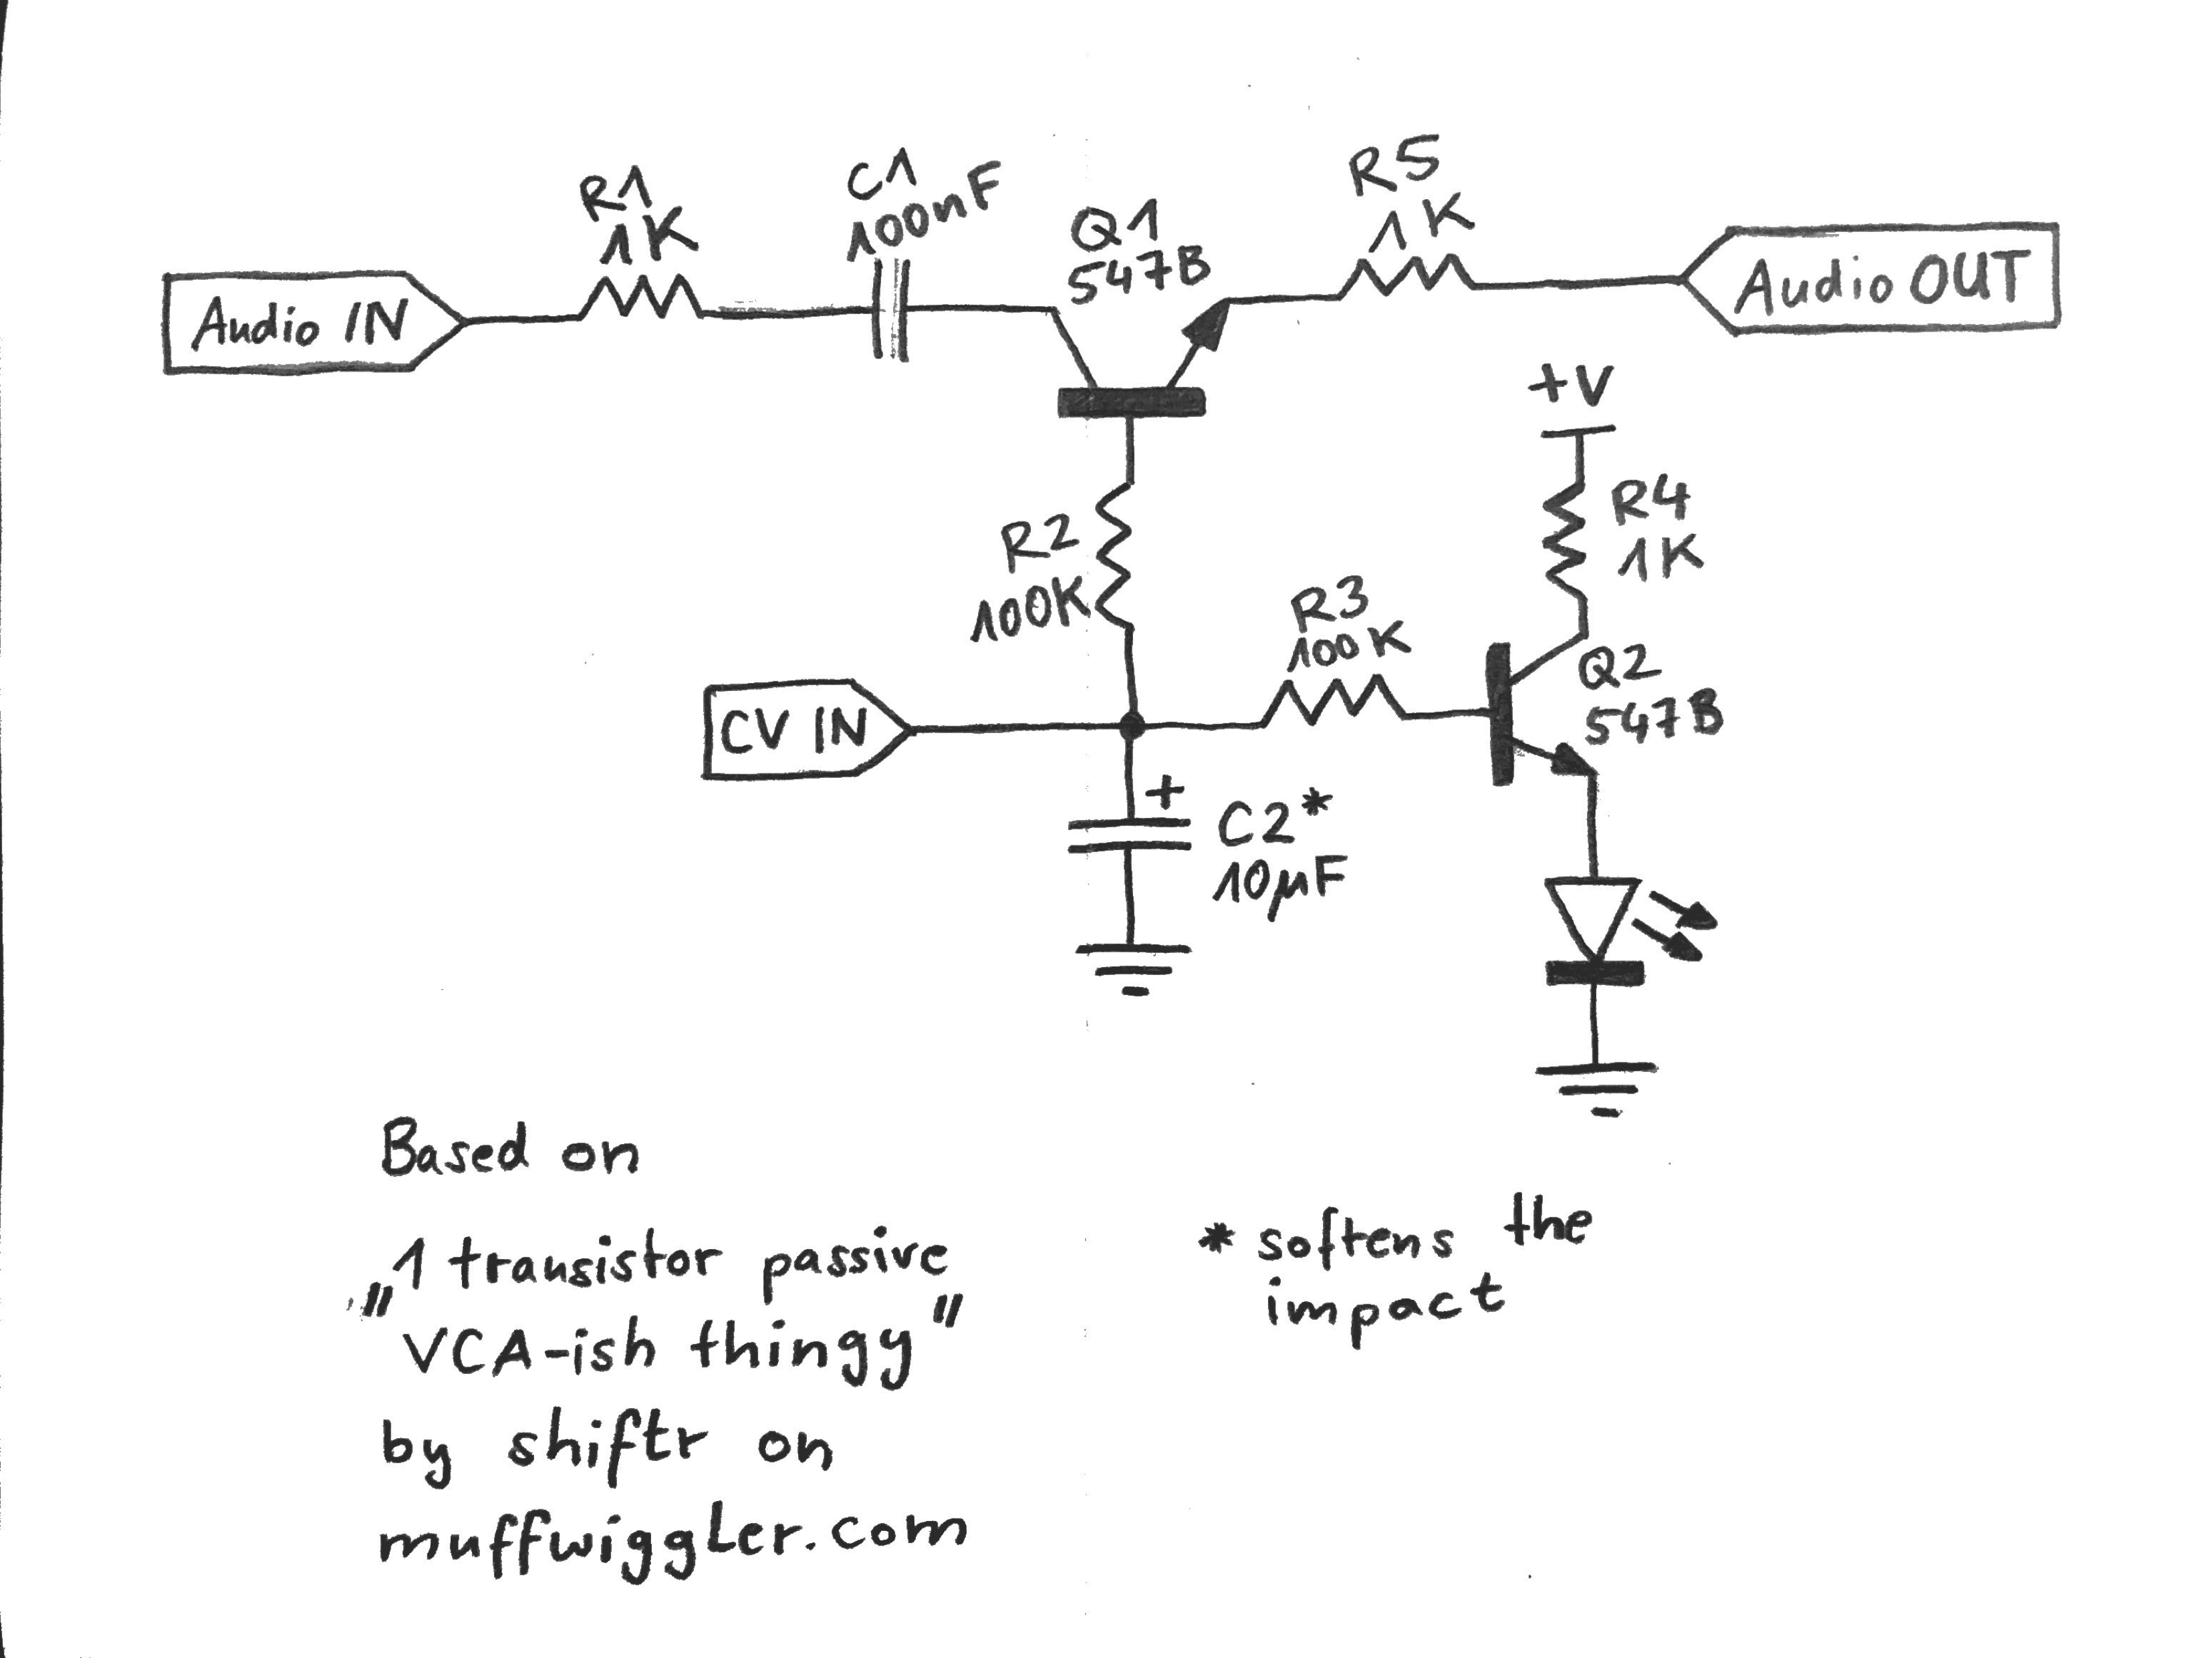 R1
1K
C1
100nF
Q1
547B
R5
1K
Audio IN
Audio OUT
+V
R4
1K
R2
100K
R3
100K
Q2
547B
CV IN
+
C2*
10µF
Based on
„1 transistor passive
VCA-ish thingy"
by shiftr on
muffwiggler.com
* softens the
impact